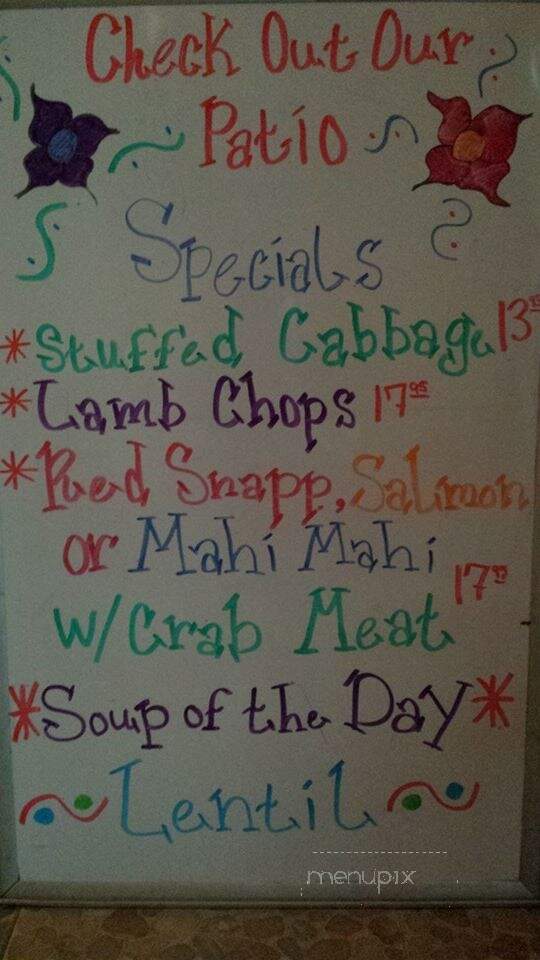 Check Out Our
Patio
Specials
* Stuffed Cabbage 13
* Lamb Chops 17 95
* Red Snapp, Salmon
or Mahi Mahi
17
w/ Crab Meat
* Soup of the Day *
Lentil
menupix